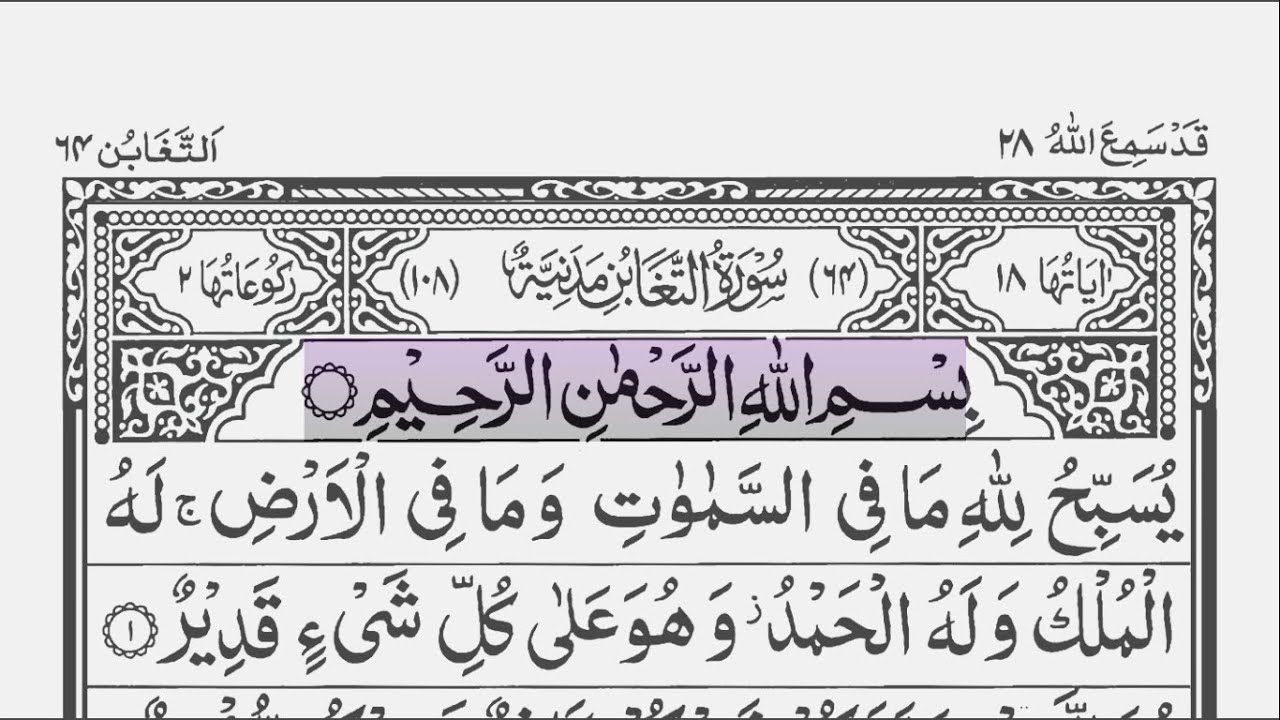 قَدْ سَمِعَ اللّٰهُ ۲۸
اَلتَّغَابُن ۶۴
اٰیَاتُهَا ۱۸
(۶۴) سُوْرَةُ التَّغَابُنِ مَدَنِیَّةٌ (۱۰۸)
رُكُوْعَاتُهَا ۲
بِسْمِ اللّٰهِ الرَّحْمٰنِ الرَّحِیْمِ
یُسَبِّحُ لِلّٰهِ مَا فِی السَّمٰوٰتِ وَمَا فِی الْاَرْضِ ۚ لَهُ
الْمُلْكُ وَلَهُ الْحَمْدُ ز وَهُوَ عَلٰی كُلِّ شَیْءٍ قَدِیْرٌ ۱